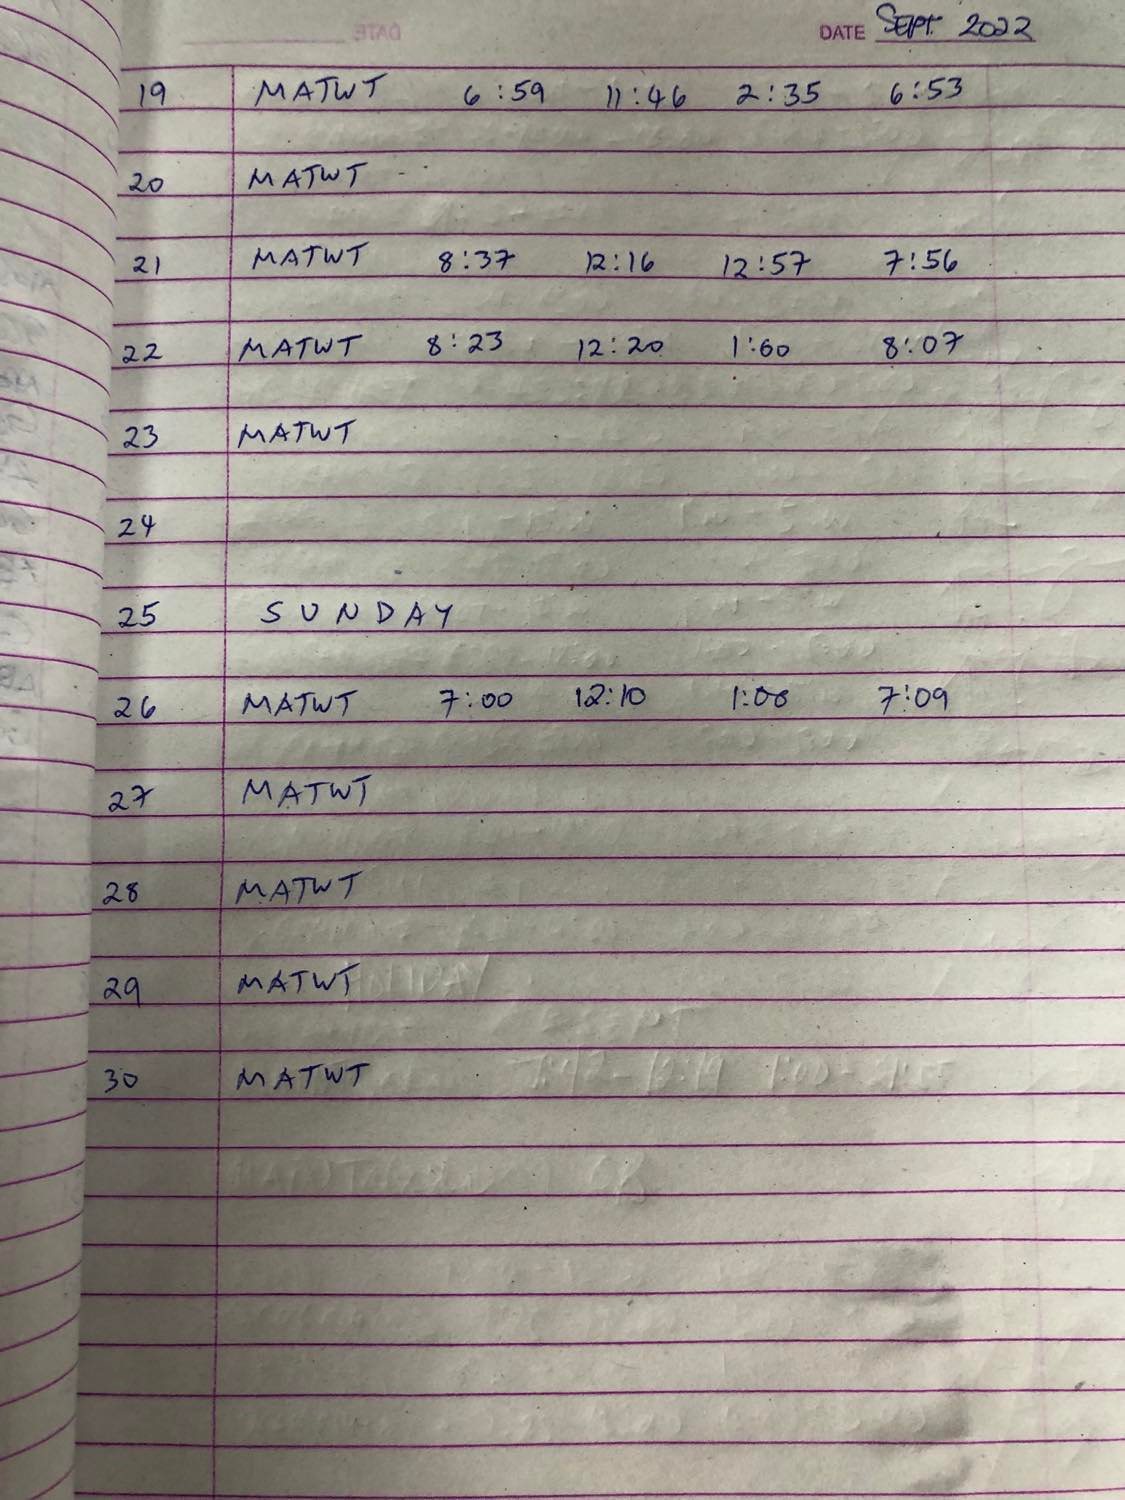 DATE SEPT. 2022
19 MATWT 6:59 11:46 2:35 6:53
20 MATWT -
21 MATWT 8:37 12:16 12:57 7:56
22 MATWT 8:23 12:20 1:00 8:07
23 MATWT
24
25 SUNDAY
26 MATWT 7:00 12:10 1:00 7:09
27 MATWT
28 MATWT
29 MATWT
30 MATWT